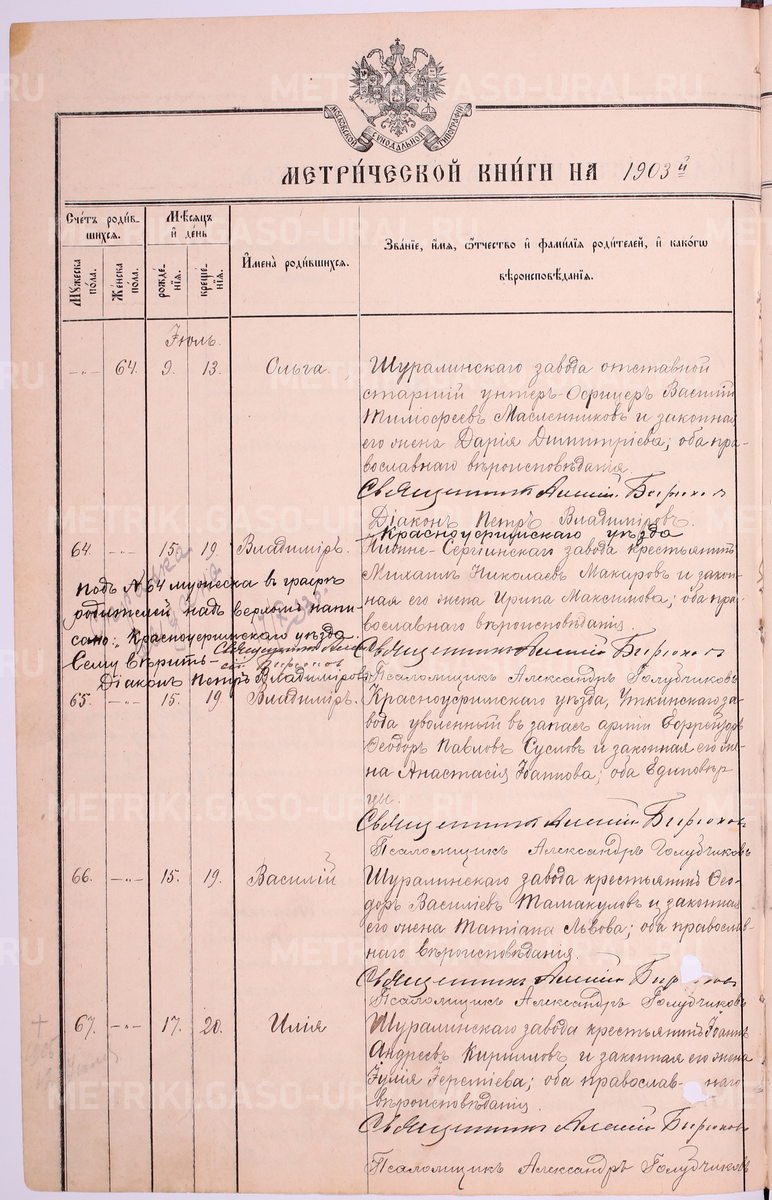 МОСКОВСКОЙ СѴНОДАЛЬНОЙ ТИПОГРАФІИ
МЕТРИЧЕСКОЙ КНИГИ НА 1903й
Счетъ родившихся.
Мѣсяцъ и день
Имена родившихся.
Званіе, имя, отчество и фамилія родителей, и какогω
вѣроисповѣданія.
Мужеска пола.
Женска пола.
рожденія.
крещенія.
Іюль.
-"- 64. 9. 13. Ольга. Шуралинскаго завода отставной
старшій унтеръ-Офицеръ Василій
Тимоѳеевъ Масленниковъ и законная
его жена Дарія Димитріева; оба пра-
вославнаго вѣроисповѣданія.
Священникъ Алексій Бирюковъ
Діаконъ Петръ Владиміровъ.
Красноуфимскаго уѣзда
64. -"- 15. 19. Владиміръ. Нижне-Сергинскаго завода крестьянинъ
Михаилъ Николаевъ Макаровъ и закон-
ная его жена Ирина Максимова; оба пра-
вославнаго вѣроисповѣданія.
Подъ № 64 мужеска въ графѣ
родителей надъ верхомъ напи-
сано: "Красноуфимскаго уѣзда.
Сему вѣрить
Священникъ Алексій Бирюковъ
Діаконъ Петръ Владиміровъ
Священникъ Алексій Бирюковъ
Псаломщикъ Александръ Голубчиковъ
65. -"- 15. 19. Владиміръ. Красноуфимскаго уѣзда, Уткинскаго за-
вода уволенный въ запасъ арміи Ефрейторъ
Ѳеодоръ Павловъ Сусловъ и законная его же-
на Анастасія Іоаннова; оба Единовѣр-
цы.
Священникъ Алексій Бирюковъ
Псаломщикъ Александръ Голубчиковъ
66. -"- 15. 19. Василій Шуралинскаго завода крестьянинъ Ѳео-
доръ Василіевъ Тамакуловъ и законная
его жена Татіана Львова; оба православ-
наго вѣроисповѣданія.
Священникъ Алексій Бирюковъ
Псаломщикъ Александръ Голубчиковъ
67. -"- 17. 20. Илія Шуралинскаго завода крестьянинъ Іоаннъ
Андреевъ Кирилловъ и законная его жена
Іулія Іереміева; оба православнаго
вѣроисповѣданія.
Священникъ Алексій Бирюковъ
Псаломщикъ Александръ Голубчиковъ
METRIKI.GASO-URAL.RU